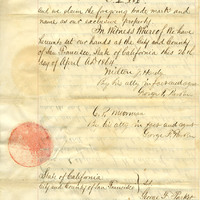 and we claim the foregoing trade mark and
name as our exclusive property
In Witness Whereof we have
hereunto set our hands at the City and County
of San Francisco, State of California this 26th
day of April A.D. 1869.
Milton J. Hardy
By his atty in fact and agent
George
C. P. Moorman
By his atty in fact and agent
George
State of California
City and County of San Francisco
George